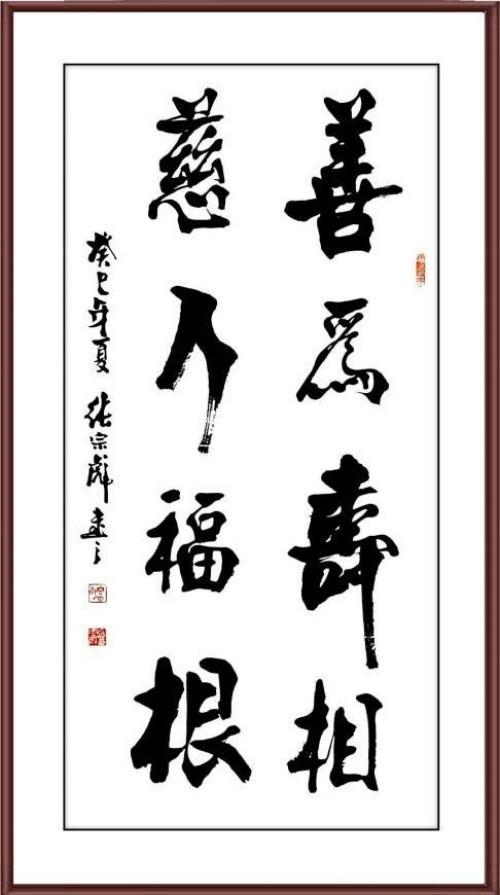 善爲壽相
慈乃福根
癸巳年夏 張宗彪書